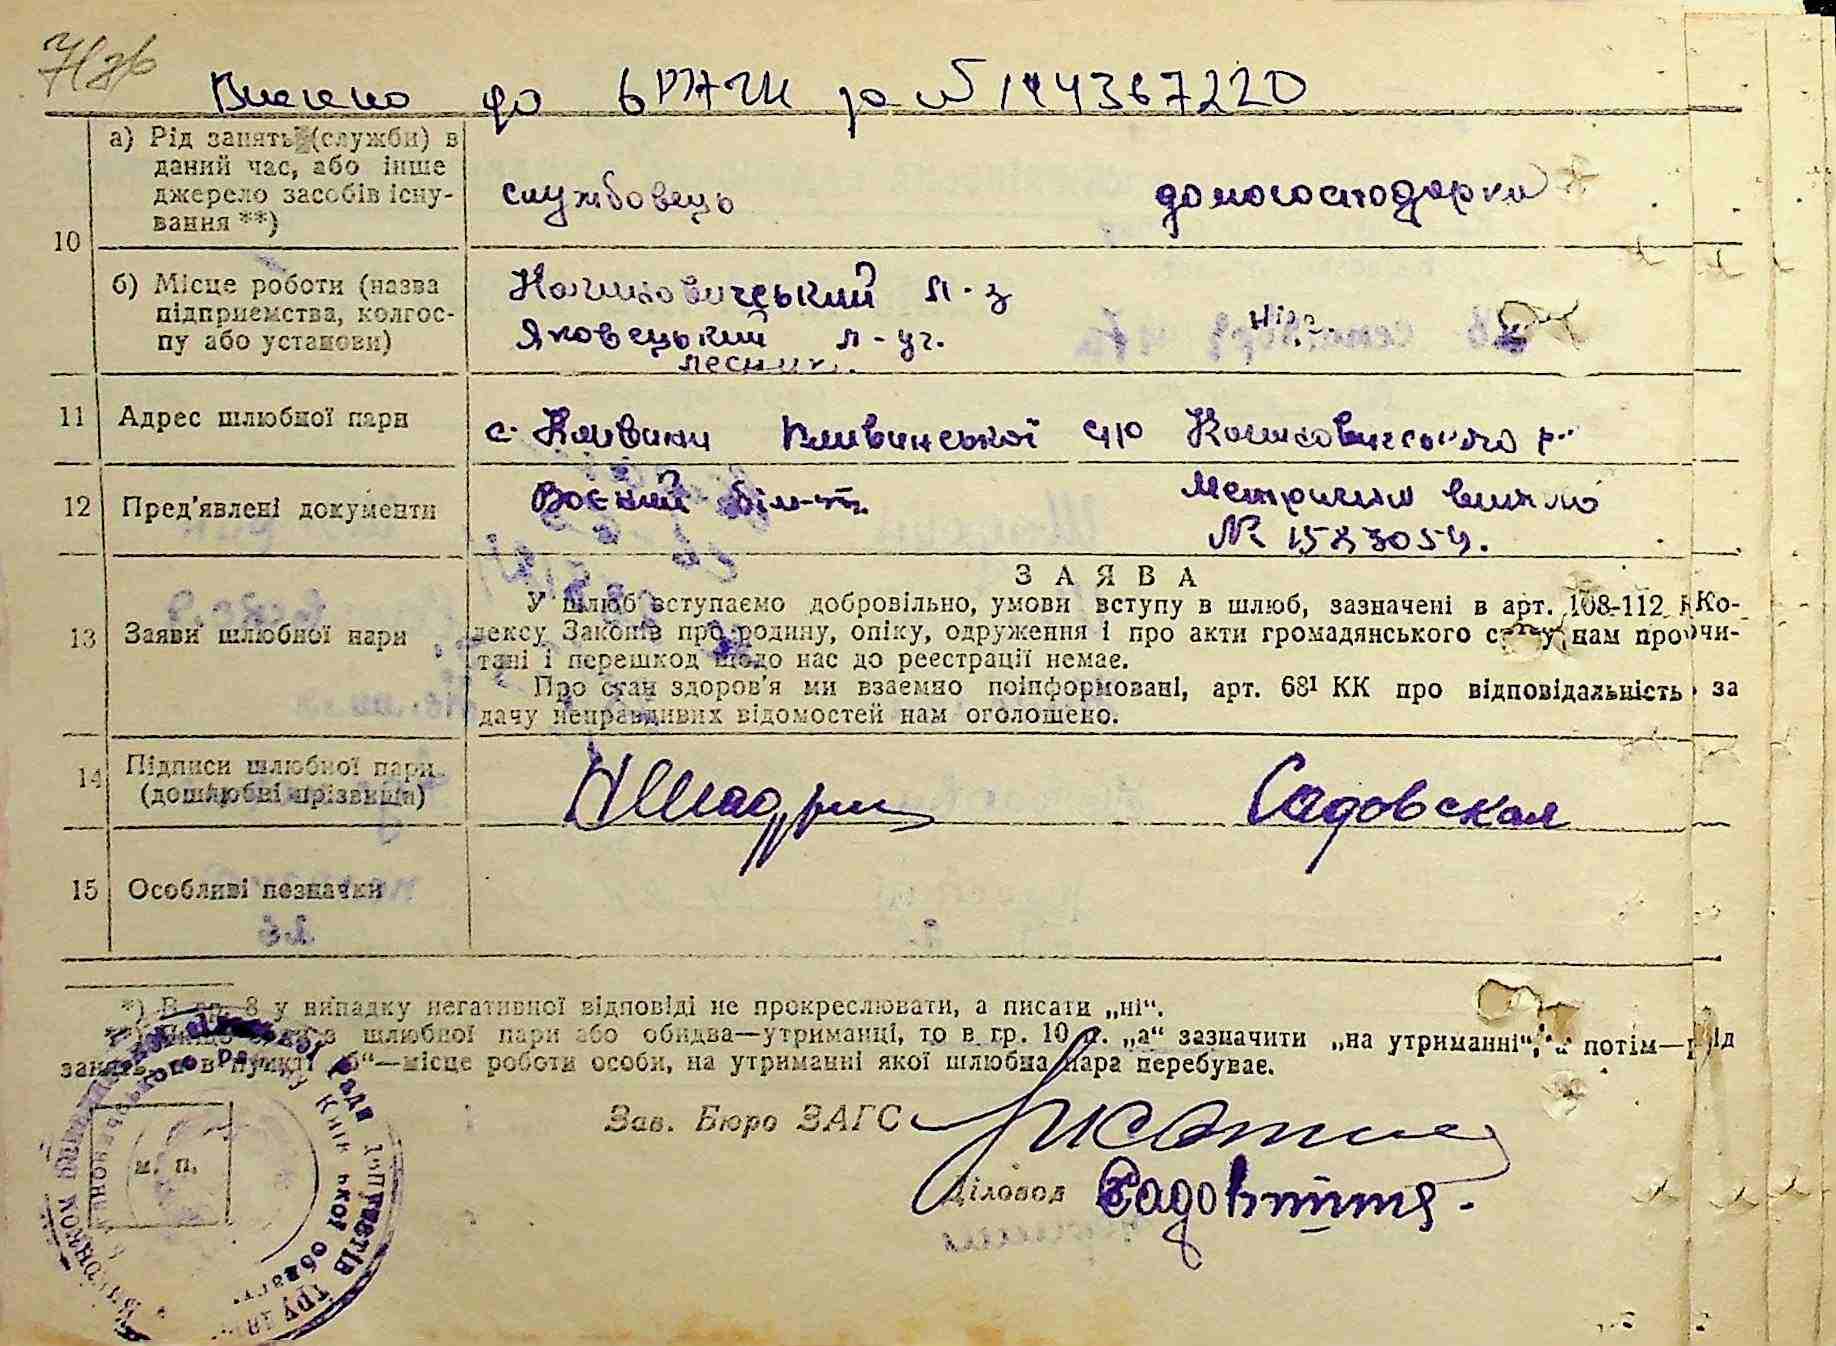 Внесено до ДРАЦС за № 144367220
10
а) Рід занять (служби) в
даний час, або інше
джерело засобів існу-
вання **)
службовець домогосподарка
б) Місце роботи (назва
підприємства, колгос-
пу або установи)
л-з
Яковецький л-уч.
лесник.
11 Адрес шлюбної пари
с. Пливинської с/ю
12 Пред'явлені документи
Воєний біл-т.
№ 1583054.
З А Я В А
У шлюб вступаємо добровільно, умови вступу в шлюб, зазначені в арт. 108-112 Ко-
дексу Законів про родину, опіку, одруження і про акти громадянського стану нам прочи-
тані і перешкод щодо нас до реєстрації немає.
13 Заяви шлюбної пари
Про стан здоров'я ми взаємно поінформовані, арт. 68¹ КК про відповідальність за
дачу неправдивих відомостей нам оголошено.
14 Підписи шлюбної пари
(дошлюбні прізвища)
Садовская
15 Особливі позначки
*) В гр. 8 у випадку негативної відповіді не прокреслювати, а писати „ні“.
шлюбної пари або обидва—утриманці, то в гр. 10 п. „а“ зазначити „на утриманні“, а потім—рід
занять, в пункті „б“—місце роботи особи, на утриманні якої шлюбна пара перебуває.
Зав. Бюро ЗАГС
Діловод
м. п.